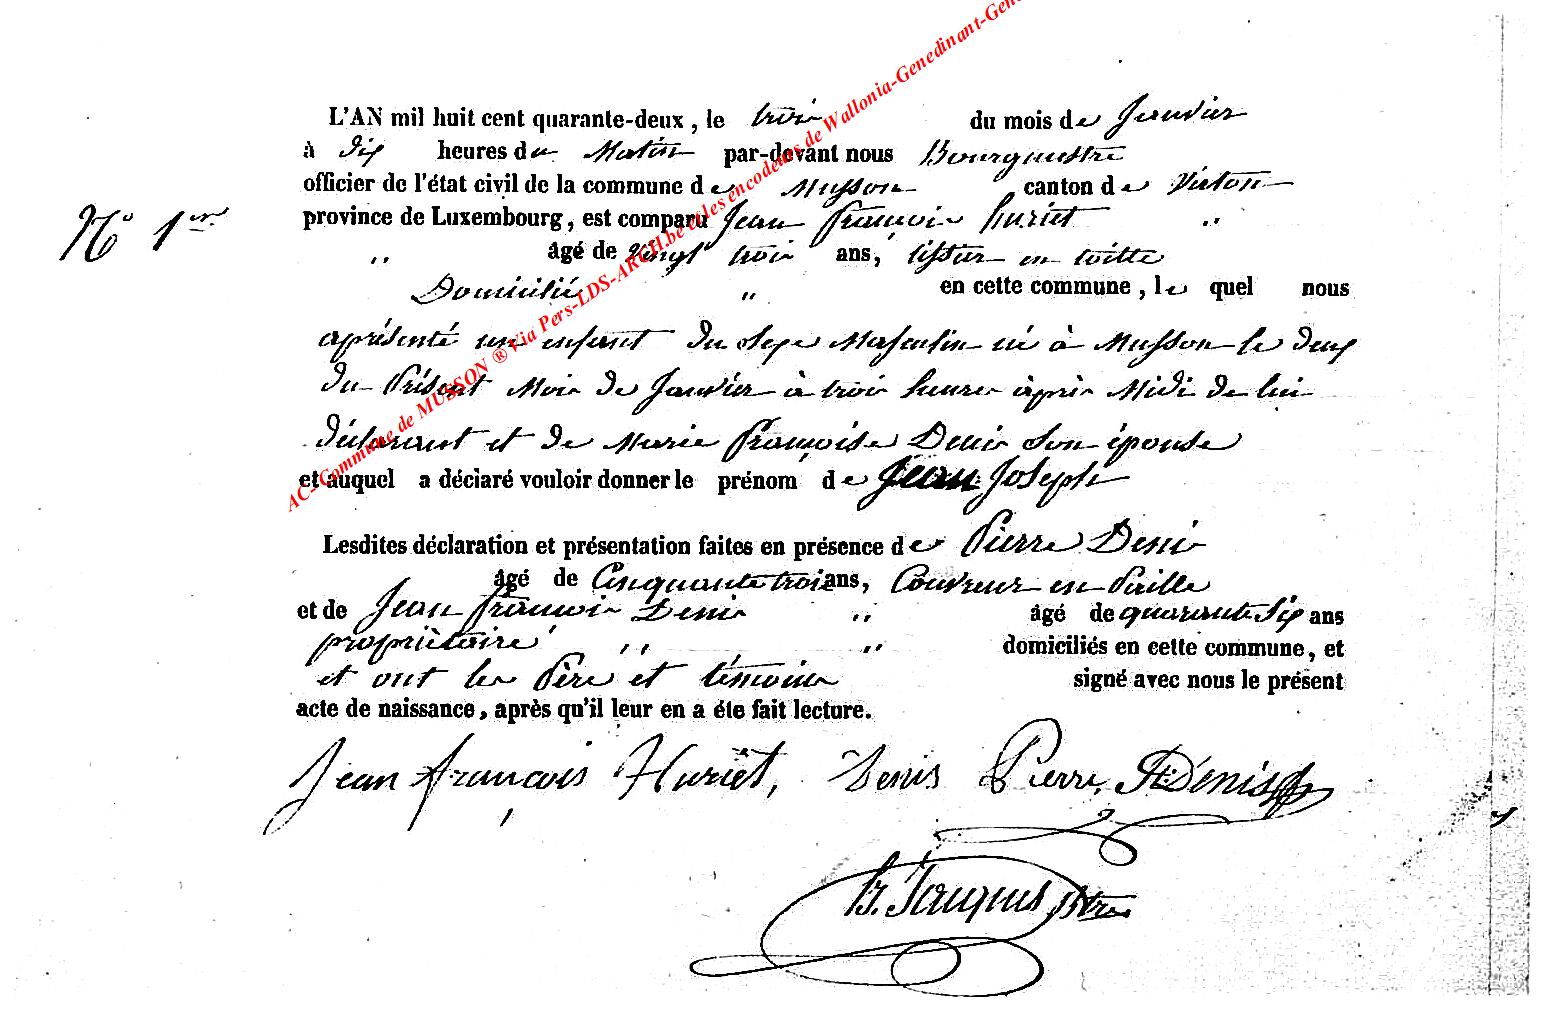 AC-Commune de MUSSON ® Via Pers-LDS-ARCH.be et les encodeurs de Wallonia-Genedinant-Gen
L'AN mil huit cent quarante-deux, le trois du mois de Janvier
à dix heures du Matin par-devant nous Bourguestre
officier de l'état civil de la commune de Musson canton de Virton
N° 1er
province de Luxembourg, est comparu Jean François huriet "
" âgé de vingt trois ans, tisseur en toille
Domicilié " en cette commune, le quel nous
aprésenté un enfant du sexe Masculin né à Musson le deux
du Présent Mois de Janvier à trois heures àprès Midi de lui
déclarant et de Marie Françoise Denis son épouse
et auquel a déclaré vouloir donner le prénom de Jean Joseph
Lesdites déclaration et présentation faites en présence de Pierre Denis
âgé de Cinquante trois ans, Couvreur en Paille
et de Jean François Denis " âgé de quarante six ans
propriètaire " " domiciliés en cette commune, et
et ont les Père et témoins signé avec nous le présent
acte de naissance, après qu'il leur en a éte fait lecture.
Jean françois Huriet, Denis Pierre, Denis
Jauquis